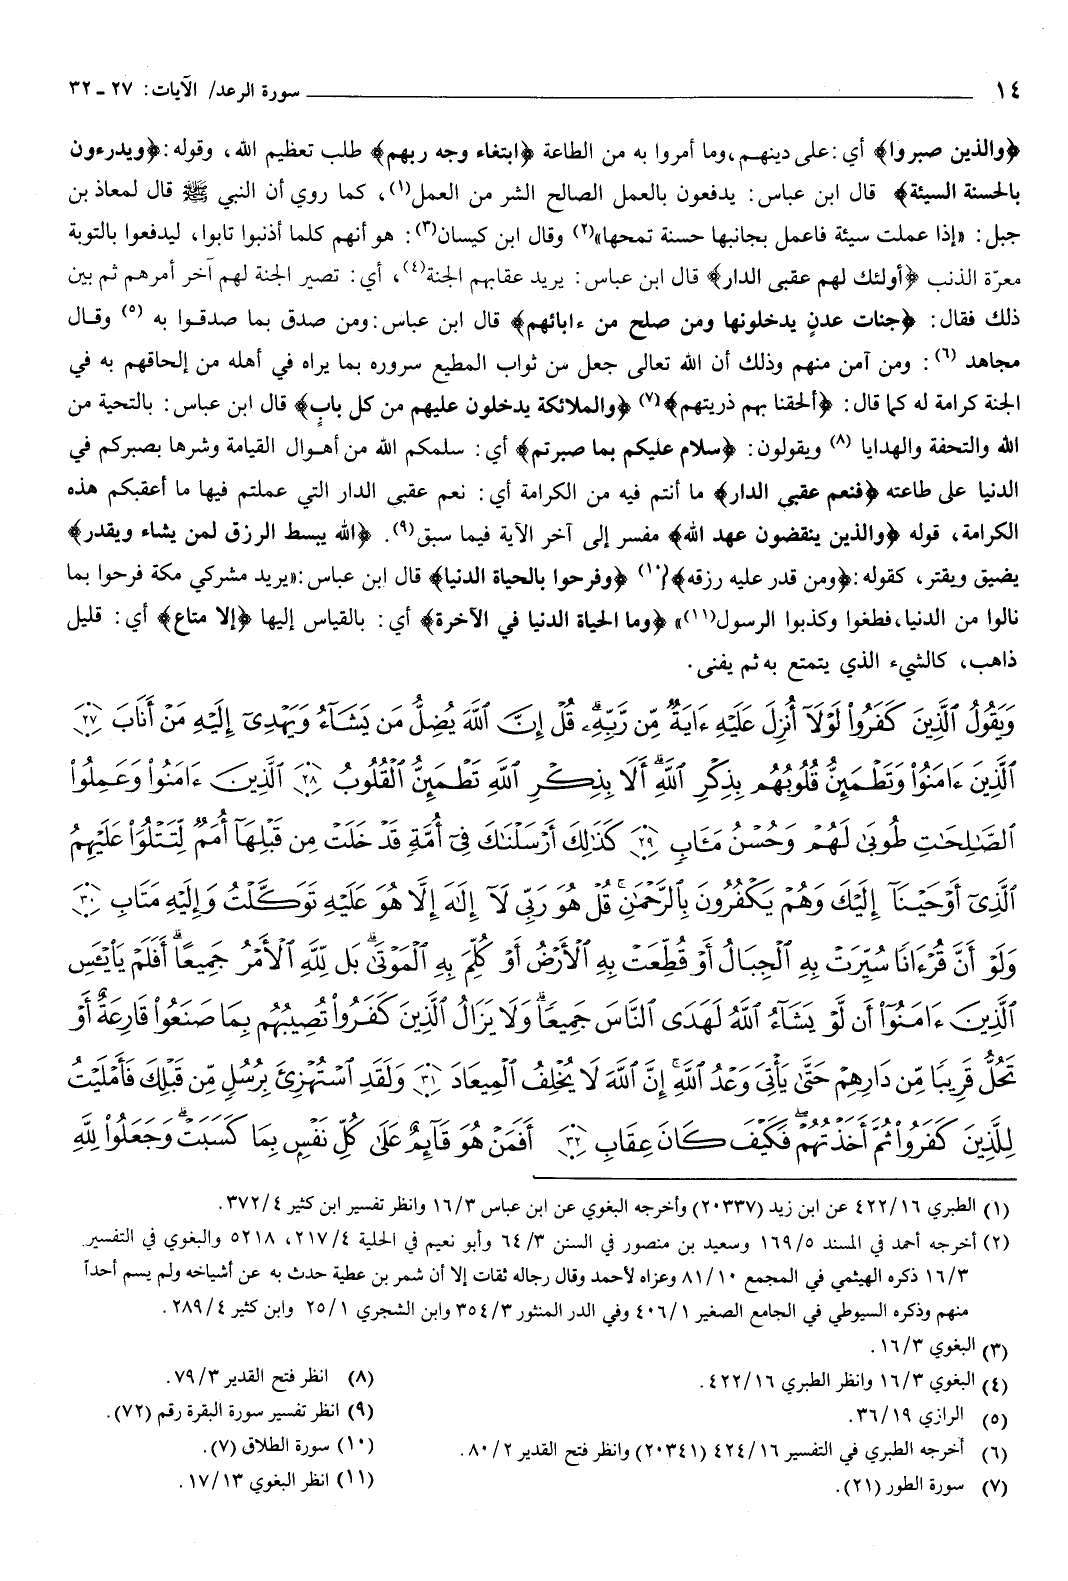 ١٤ سورة الرعد/ الآيات: ٢٧ ـ ٣٢
﴿والذين صبروا﴾ أي :على دينهم ،وما أمروا به من الطاعة ﴿ابتغاء وجه ربهم﴾ طلب تعظيم الله، وقوله :﴿ويدرءون
بالحسنة السيئة﴾ قال ابن عباس: يدفعون بالعمل الصالح الشر من العمل(١)، كما روي أن النبي ﷺ قال لمعاذ بن
جبل: «إذا عملت سيئة فاعمل بجانبها حسنة تمحها»(٢) وقال ابن كيسان(٣): هو أنهم كلما أذنبوا تابوا، ليدفعوا بالتوبة
معرّة الذنب ﴿أولئك لهم عقبى الدار﴾ قال ابن عباس: يريد عقابهم الجنة(٤)، أي: تصير الجنة لهم آخر أمرهم ثم بين
ذلك فقال: ﴿جنات عدنٍ يدخلونها ومن صلح من ءابائهم﴾ قال ابن عباس :ومن صدق بما صدقوا به (٥) وقال
مجاهد (٦): ومن آمن منهم وذلك أن الله تعالى جعل من ثواب المطيع سروره بما يراه في أهله من إلحاقهم به في
الجنة كرامة له كما قال: ﴿ألحقنا بهم ذريتهم﴾(٧) ﴿والملائكة يدخلون عليهم من كل بابٍ﴾ قال ابن عباس: بالتحية من
الله والتحفة والهدايا (٨) ويقولون: ﴿سلام عليكم بما صبرتم﴾ أي: سلمكم الله من أهوال القيامة وشرها بصبركم في
الدنيا على طاعته ﴿فنعم عقبي الدار﴾ ما أنتم فيه من الكرامة أي: نعم عقبي الدار التي عملتم فيها ما أعقبكم هذه
الكرامة، قوله ﴿والذين ينقضون عهد الله﴾ مفسر إلى آخر الآية فيما سبق(٩). ﴿الله يبسط الرزق لمن يشاء ويقدر﴾
يضيق ويقتر، كقوله :﴿ومن قدر عليه رزقه﴾(١٠) ﴿وفرحوا بالحياة الدنيا﴾ قال ابن عباس :«يريد مشركي مكة فرحوا بما
نالوا من الدنيا،فطغوا وكذبوا الرسول(١١)» ﴿وما الحياة الدنيا في الآخرة﴾ أي: بالقياس إليها ﴿إلا متاع﴾ أي: قليل
ذاهب، كالشيء الذي يتمتع به ثم يفنى.
وَيَقُولُ ٱلَّذِينَ كَفَرُوا۟ لَوْلَآ أُنزِلَ عَلَيْهِ ءَايَةٌ مِّن رَّبِّهِۦ ۗ قُلْ إِنَّ ٱللَّهَ يُضِلُّ مَن يَشَآءُ وَيَهْدِىٓ إِلَيْهِ مَنْ أَنَابَ ٢٧
ٱلَّذِينَ ءَامَنُوا۟ وَتَطْمَئِنُّ قُلُوبُهُم بِذِكْرِ ٱللَّهِ ۗ أَلَا بِذِكْرِ ٱللَّهِ تَطْمَئِنُّ ٱلْقُلُوبُ ٢٨ ٱلَّذِينَ ءَامَنُوا۟ وَعَمِلُوا۟
ٱلصَّـٰلِحَـٰتِ طُوبَىٰ لَهُمْ وَحُسْنُ مَـَٔابٍ ٢٩ كَذَٰلِكَ أَرْسَلْنَـٰكَ فِىٓ أُمَّةٍ قَدْ خَلَتْ مِن قَبْلِهَآ أُمَمٌ لِّتَتْلُوَا۟ عَلَيْهِمُ
ٱلَّذِىٓ أَوْحَيْنَآ إِلَيْكَ وَهُمْ يَكْفُرُونَ بِٱلرَّحْمَـٰنِ ۚ قُلْ هُوَ رَبِّى لَآ إِلَـٰهَ إِلَّا هُوَ عَلَيْهِ تَوَكَّلْتُ وَإِلَيْهِ مَتَابِ ٣٠
وَلَوْ أَنَّ قُرْءَانًا سُيِّرَتْ بِهِ ٱلْجِبَالُ أَوْ قُطِّعَتْ بِهِ ٱلْأَرْضُ أَوْ كُلِّمَ بِهِ ٱلْمَوْتَىٰ ۗ بَل لِّلَّهِ ٱلْأَمْرُ جَمِيعًا ۗ أَفَلَمْ يَا۟يْـَٔسِ
ٱلَّذِينَ ءَامَنُوٓا۟ أَن لَّوْ يَشَآءُ ٱللَّهُ لَهَدَى ٱلنَّاسَ جَمِيعًا ۗ وَلَا يَزَالُ ٱلَّذِينَ كَفَرُوا۟ تُصِيبُهُم بِمَا صَنَعُوا۟ قَارِعَةٌ أَوْ
تَحُلُّ قَرِيبًا مِّن دَارِهِمْ حَتَّىٰ يَأْتِىَ وَعْدُ ٱللَّهِ ۚ إِنَّ ٱللَّهَ لَا يُخْلِفُ ٱلْمِيعَادَ ٣١ وَلَقَدِ ٱسْتُهْزِئَ بِرُسُلٍ مِّن قَبْلِكَ فَأَمْلَيْتُ
لِلَّذِينَ كَفَرُوا۟ ثُمَّ أَخَذْتُهُمْ ۖ فَكَيْفَ كَانَ عِقَابِ ٣٢ أَفَمَنْ هُوَ قَآئِمٌ عَلَىٰ كُلِّ نَفْسٍۭ بِمَا كَسَبَتْ ۗ وَجَعَلُوا۟ لِلَّهِ
(١) الطبري ٤٢٢/١٦ عن ابن زيد (٢٠٣٣٧) وأخرجه البغوي عن ابن عباس ١٦/٣ وانظر تفسير ابن كثير ٣٧٢/٤.
(٢) أخرجه أحمد في المسند ١٦٩/٥ وسعيد بن منصور في السنن ٦٤/٣ وأبو نعيم في الحلية ٢١٧/٤، ٥٢١٨ والبغوي في التفسير
١٦/٣ ذكره الهيثمي في المجمع ٨١/١٠ وعزاه لأحمد وقال رجاله ثقات إلا أن شمر بن عطية حدث به عن أشياخه ولم يسم أحداً
منهم وذكره السيوطي في الجامع الصغير ٤٠٦/١ وفي الدر المنثور ٣٥٤/٣ وابن الشجري ٢٥/١ وابن كثير ٢٨٩/٤.
(٣) البغوي ١٦/٣.
(٤) البغوي ١٦/٣ وانظر الطبري ٤٢٢/١٦.
(٥) الرازي ٣٦/١٩.
(٦) أخرجه الطبري في التفسير ٤٢٤/١٦ (٢٠٣٤١) وانظر فتح القدير ٨٠/٢.
(٧) سورة الطور (٢١).
(٨) انظر فتح القدير ٧٩/٣.
(٩) انظر تفسير سورة البقرة رقم (٧٢).
(١٠) سورة الطلاق (٧).
(١١) انظر البغوي ١٧/١٣.